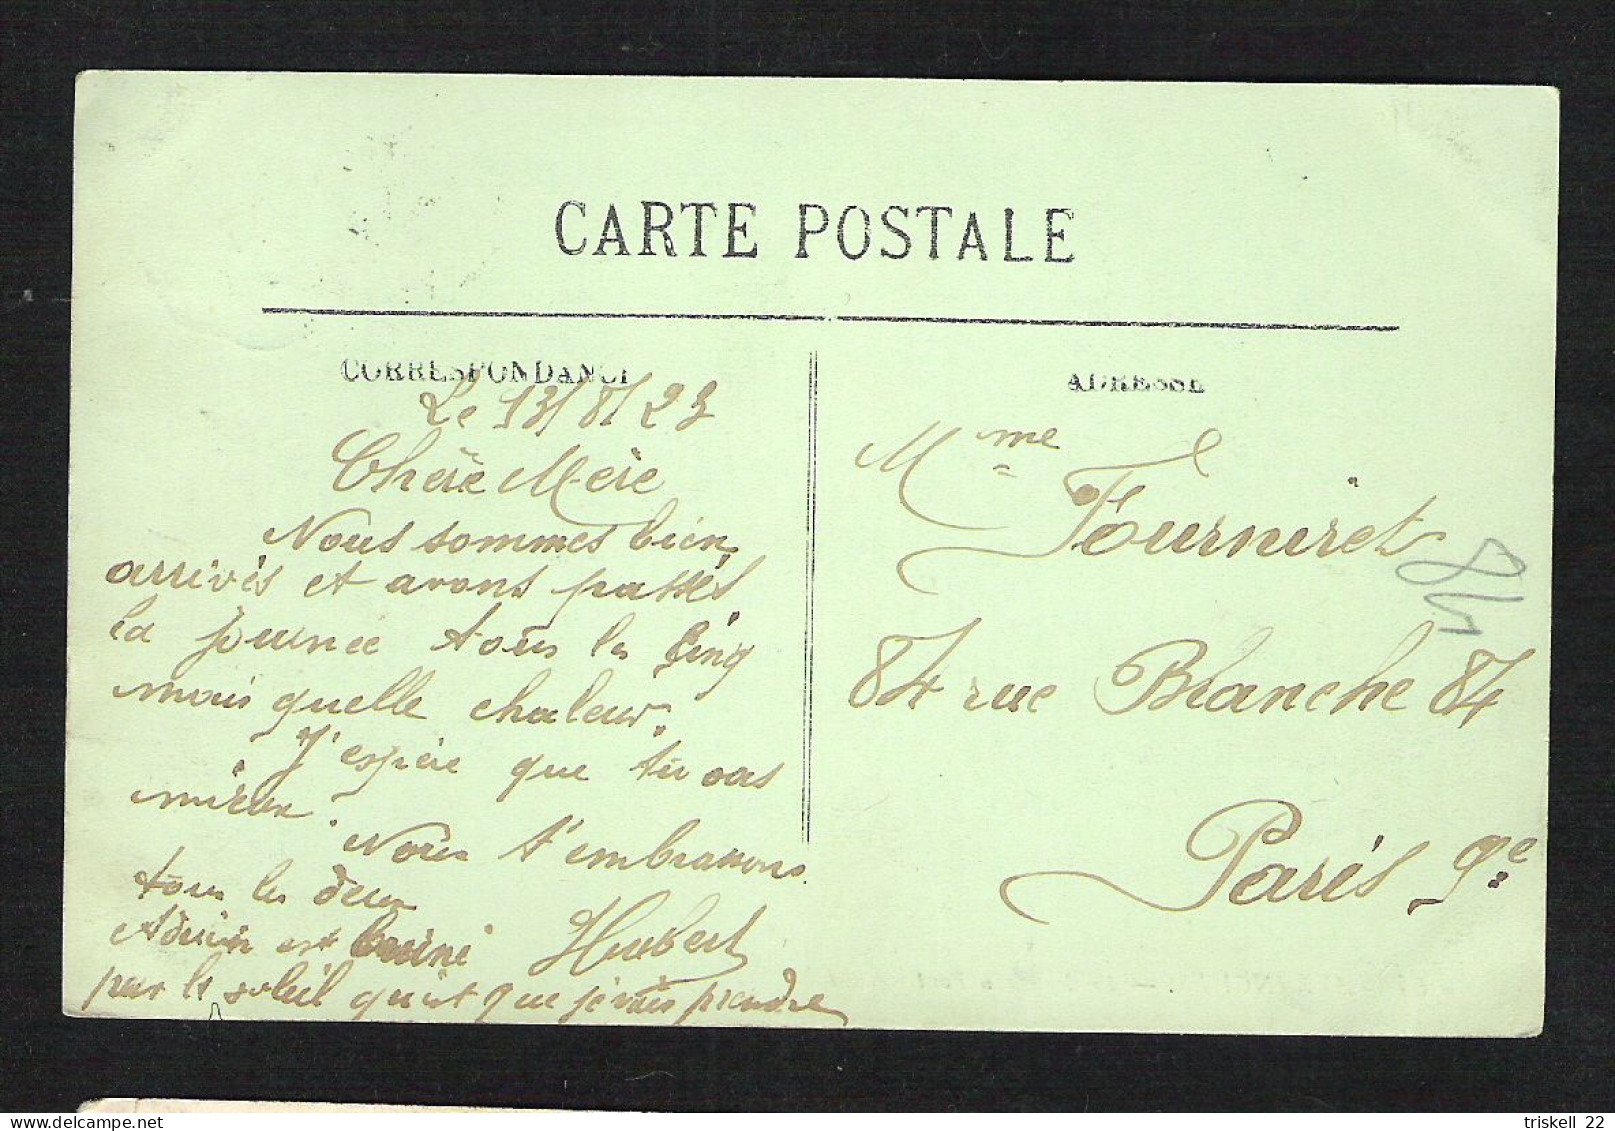 CARTE POSTALE
CORRESPONDANCE
Le 13/8/23
Chère Mère
Nous sommes bien
arrivés et avons passés
la journée tous les cinq
mais quelle chaleur.
J'espère que tu vas
mieux.
Nous t'embrassons
tous les deux
Hubert
Adrien est bruni
par le soleil qu'est que je vais prendre
ADRESSE
Mme
Fourniret
84 rue Blanche 84
Paris 9e
triskell 22